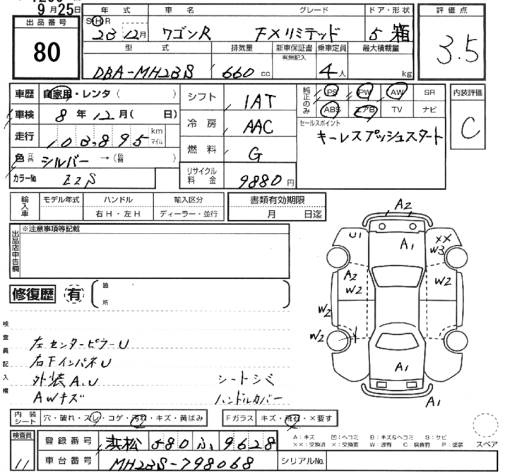 9月25日
出品番号
80
年式 車名 グレード ドア・形状
S・H・R
23年12月 ワゴンR FXリミテッド 5 箱
型式 排気量 新車保証書 乗車定員 最大積載量
有無記入
DBA-MH23S 660 cc 4人 kg
評価点
3.5
車歴 自家用・レンタ( )
車検 8年12月( 日)
走行 103,895 km マイル
色 シルバー → ( )
カラーNo Z2S
シフト 1AT
冷房 AAC
燃料 G
リサイクル料金 9880円
純正のみ
PS PW AW SR
ABS エアB TV ナビ
セールスポイント
キーレスプッシュスタート
内装評価
C
輸入車 モデル年式 ハンドル 輸入区分 書類有効期限
右H・左H ディーラー・並行 月 日迄
出品店申告欄
※注意事項等記載
修復歴 有
箇所
検査員記入欄
左センターピラーU
右FインパネU
外装A.U
AWキズ
シートシミ
ハンドルカバー
A2
U1
A1
XX
W3
A2
W2
W2
W2
W2
W2
A1
A1
A1
内装シート 穴・破れ・スレ・コゲ・汚れ・キズ・黄ばみ
Fガラス キズ・飛石・×要す
検査員
11
登録番号 浜松 580 ふ 9628
車台番号 MH23S-798068
シリアルNo.
A:キズ U:凹 B:キズ&ヘコミ S:サビ
XX:交換済 X:要交換 W:波有 C:腐食 P:塗装
スペア